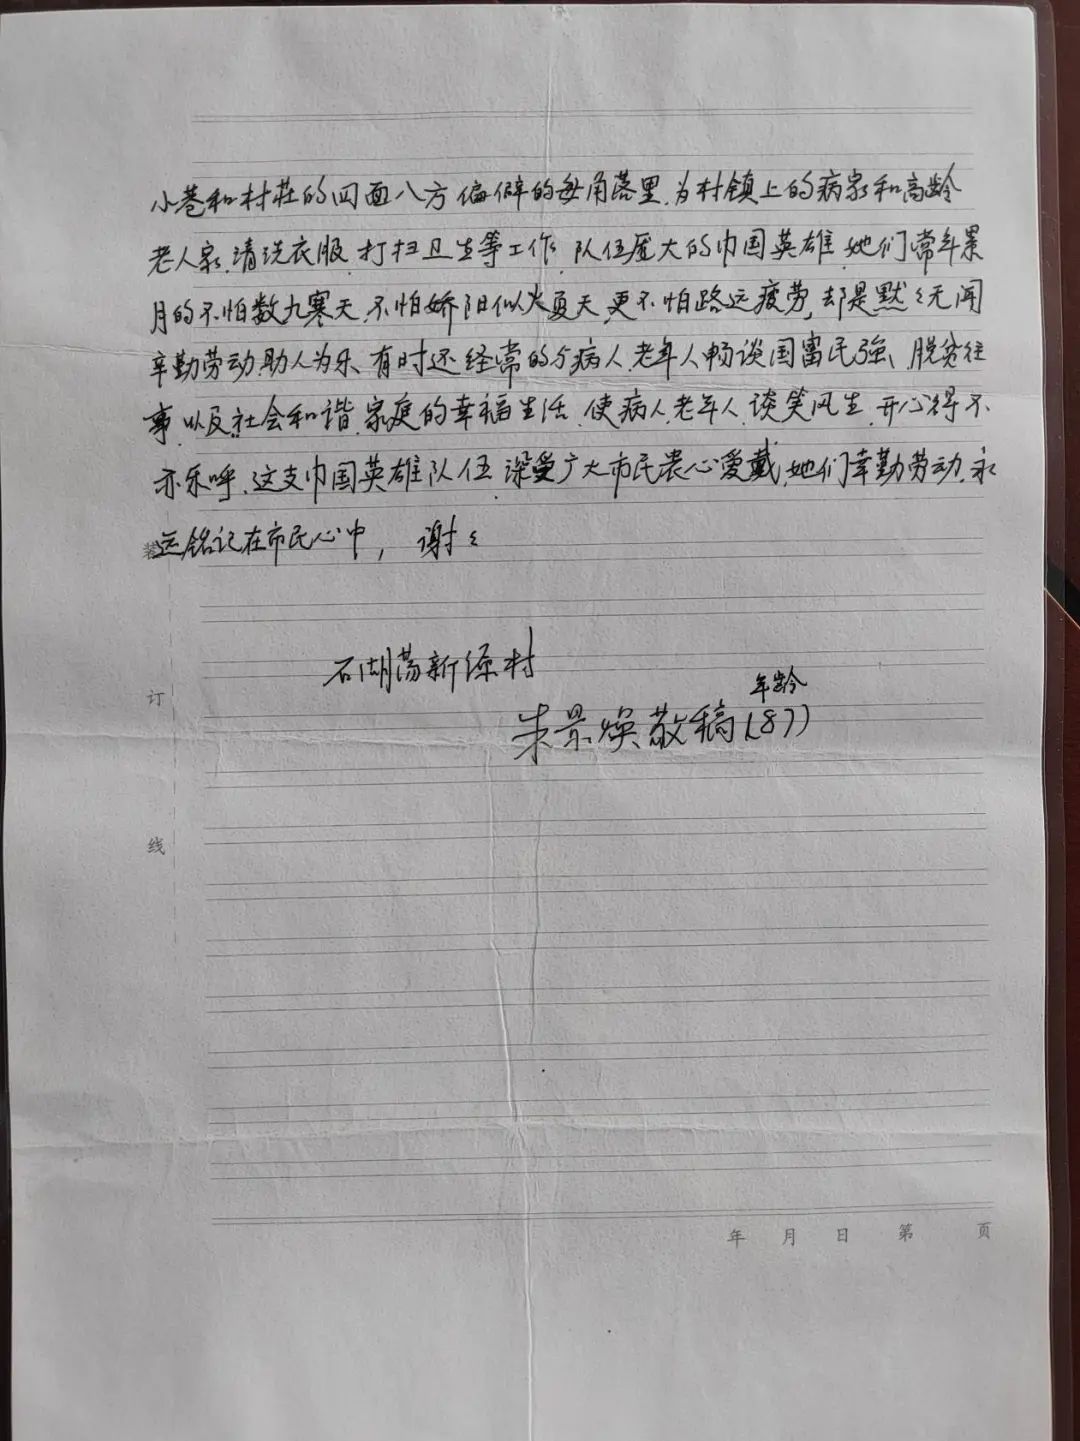 小巷和村荘的四面八方偏僻的每角落里.为村镇上的病家和高龄
老人家.清洗衣服.打扫卫生等工作.队伍庞大的巾国英雄.她们常年累
月的不怕数九寒天.不怕娇阳似火夏天,更不怕路远疲劳,却是默〻无闻
辛勤劳动.助人为乐、有时还经常的与病人.老年人畅谈国富民強、脱贫往
事.以及社会和谐.家庭的幸福生活.使病人.老年人.谈笑风生.开心得不
亦乐呼.这支巾国英雄队伍.深受广大市民衷心爱戴.她们幸勤劳动.永
远铭记在市民心中, 谢〻
石湖荡新源村
年龄
朱景焕敬稿(87)
装
订
线
年 月 日 第 页